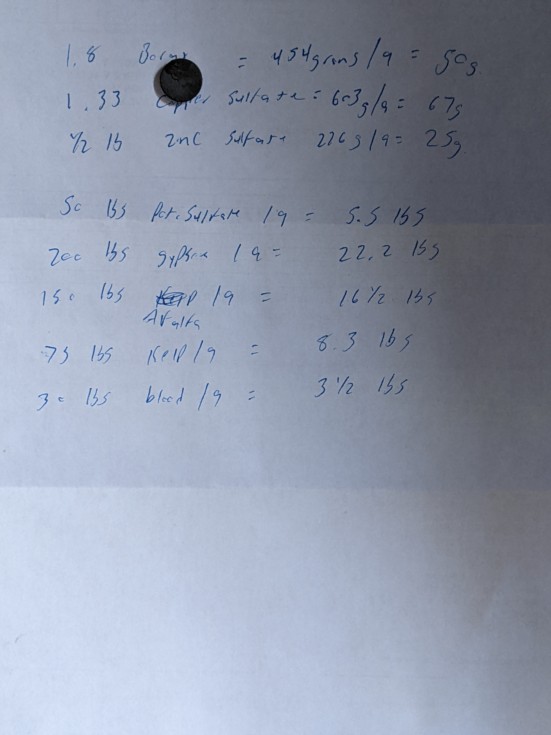 1.8 Borax = 454grams/a = 50g
1.33 Copper Sulfate = 603g/a = 67g
1/2 lb zinc Sulfate 226g/a = 25g
50 lbs Pot. Sulfate /a = 5.5 lbs
200 lbs gypsum /a = 22.2 lbs
150 lbs /a = 16 1/2 lbs
Alfalfa
75 lbs Kelp/a = 8.3 lbs
30 lbs blood/a = 3 1/2 lbs